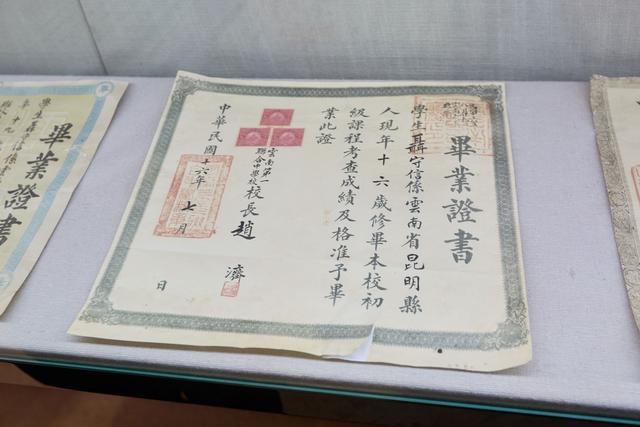 畢業證書
學生聶守信係雲南省昆明縣
人現年十六歲修畢本校初
級課程考查成績及格准予畢
業此證
雲南第一
聯合中學校
校長趙濟
中華民國十六年七月日
學生聶守信係
畢業證書